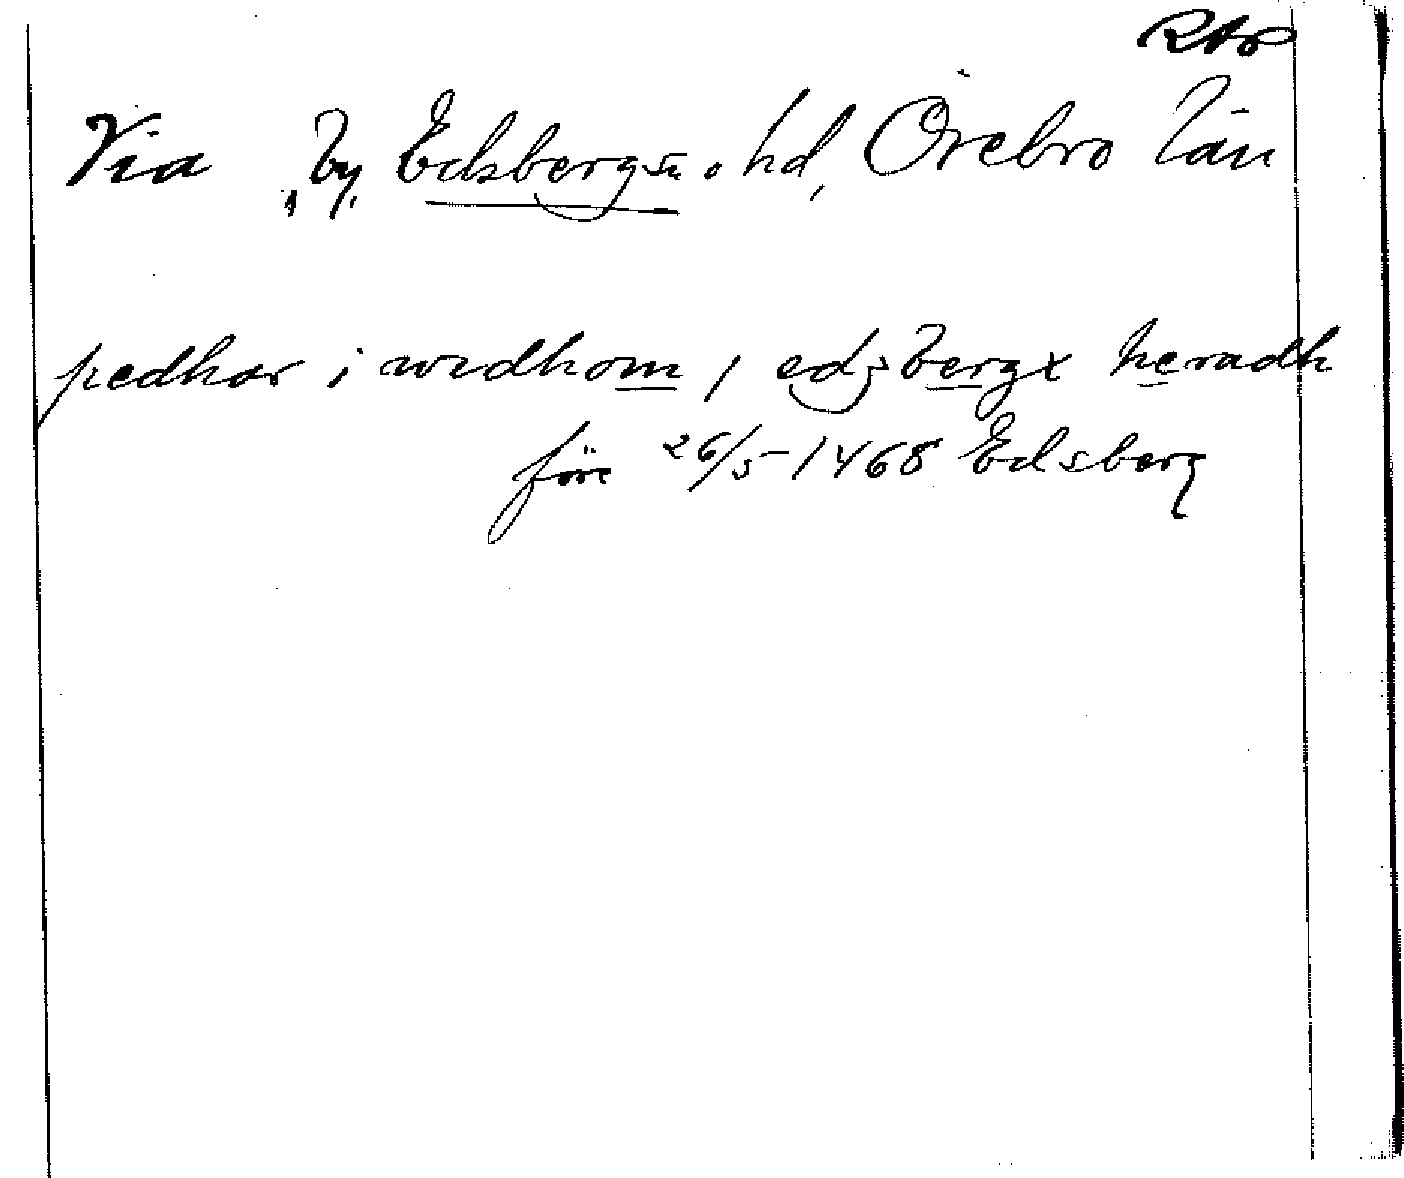 RAp
Via, by, Edsbergs sn. o. hd, Örebro län
pedhar i wedhom, edzbergx heradh
före 26/5 1468 Edsberg